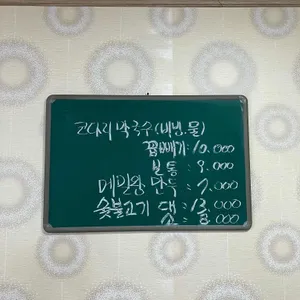 코다리막국수(비빔.물)
곱빼기:10.000
보통:9.000
메밀왕만두:7.000
숯불고기 대:13.000
소:8.000